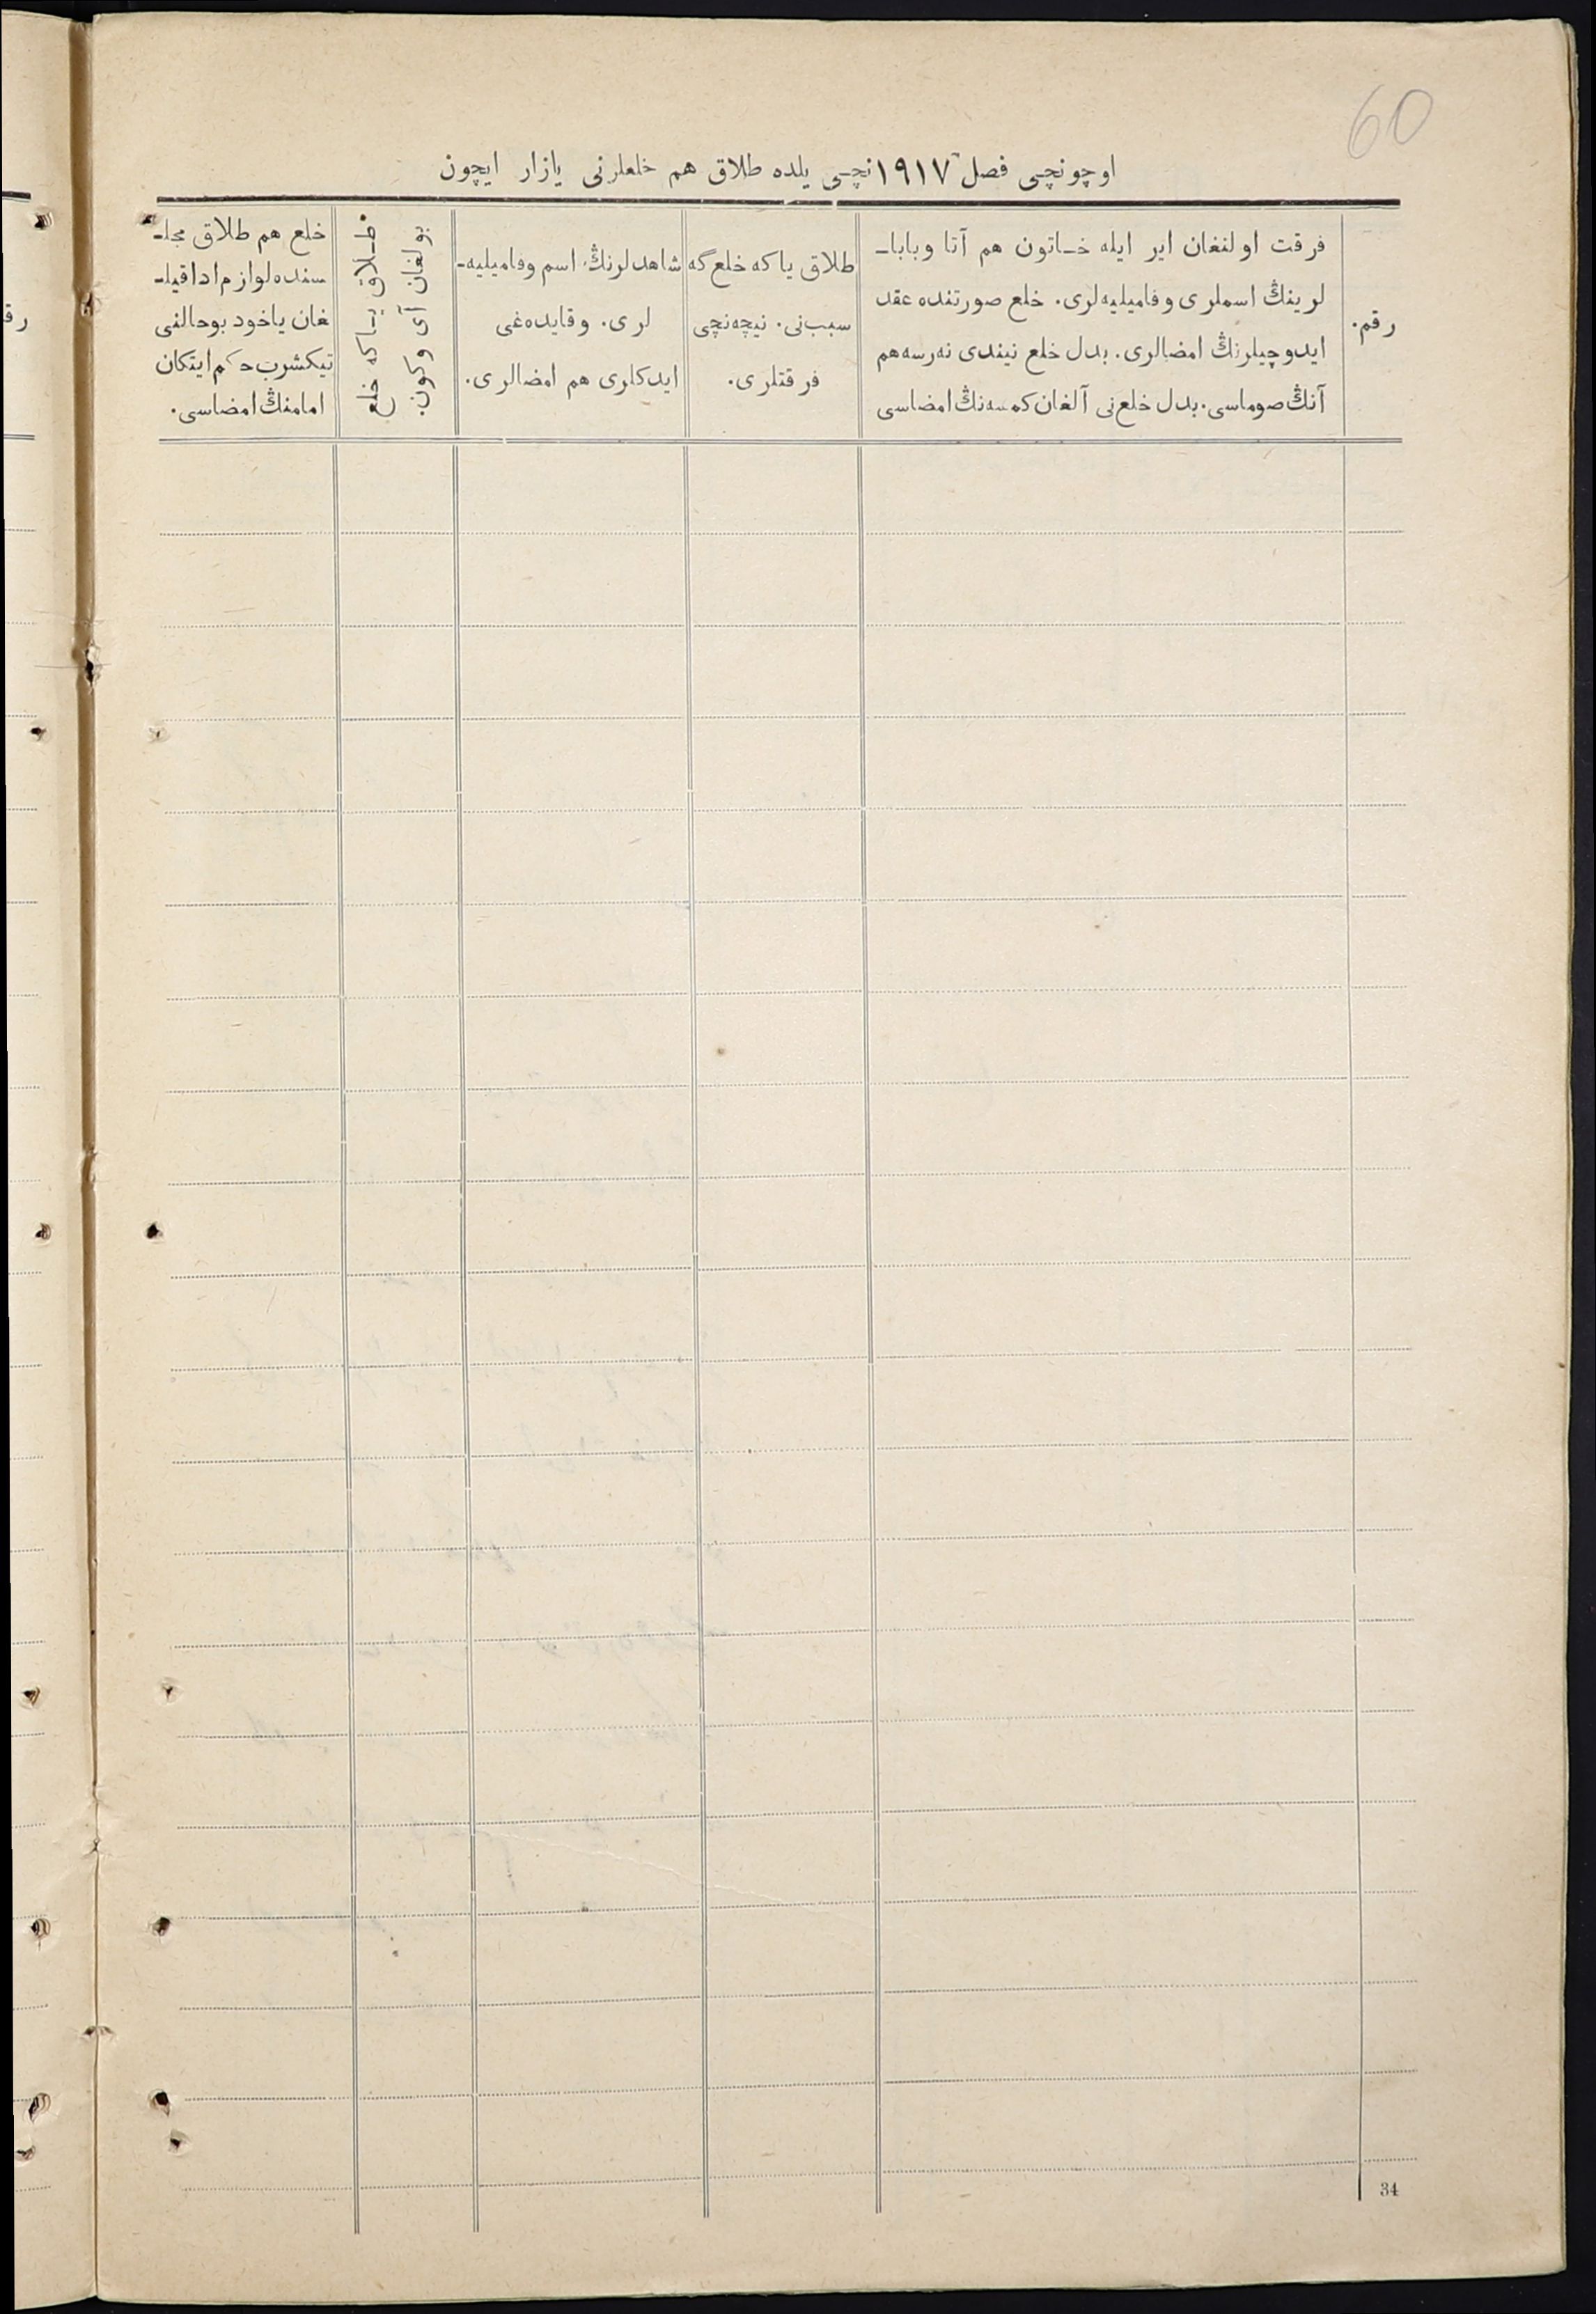 60
اوچونچی فصل ١٩١٧نچی يلده طلاق هم خلعلرنی يازار ايچون
رقم.
فرقت اولنغان اير ايله خاتون هم آتا وبابا-
لرينڭ اسملری وفاميليه‌لری. خلع صورتنده عقد
ايدوچيلرنڭ امضالری. بدل خلع نيندی نه‌رسه هم
آنڭ صوماسی. بدل خلع‌نی آلغان كمسه‌نڭ امضاسی
طلاق ياكه خلع‌گه
سبب‌نی. نيچه‌نچی
فرقتلری.
شاهدلرنڭ اسم وفاميليه-
لری. وقايده‌غی
ايدكلری هم امضالری.
طلاق ياكه خلع
بولغان آی وكون.
خلع هم طلاق مجلـ-
سنده لوازم ادا قيلـ-
غان ياخود بوحالنی
تيكشرب حكم ايتكان
امامنڭ امضاسی.
34